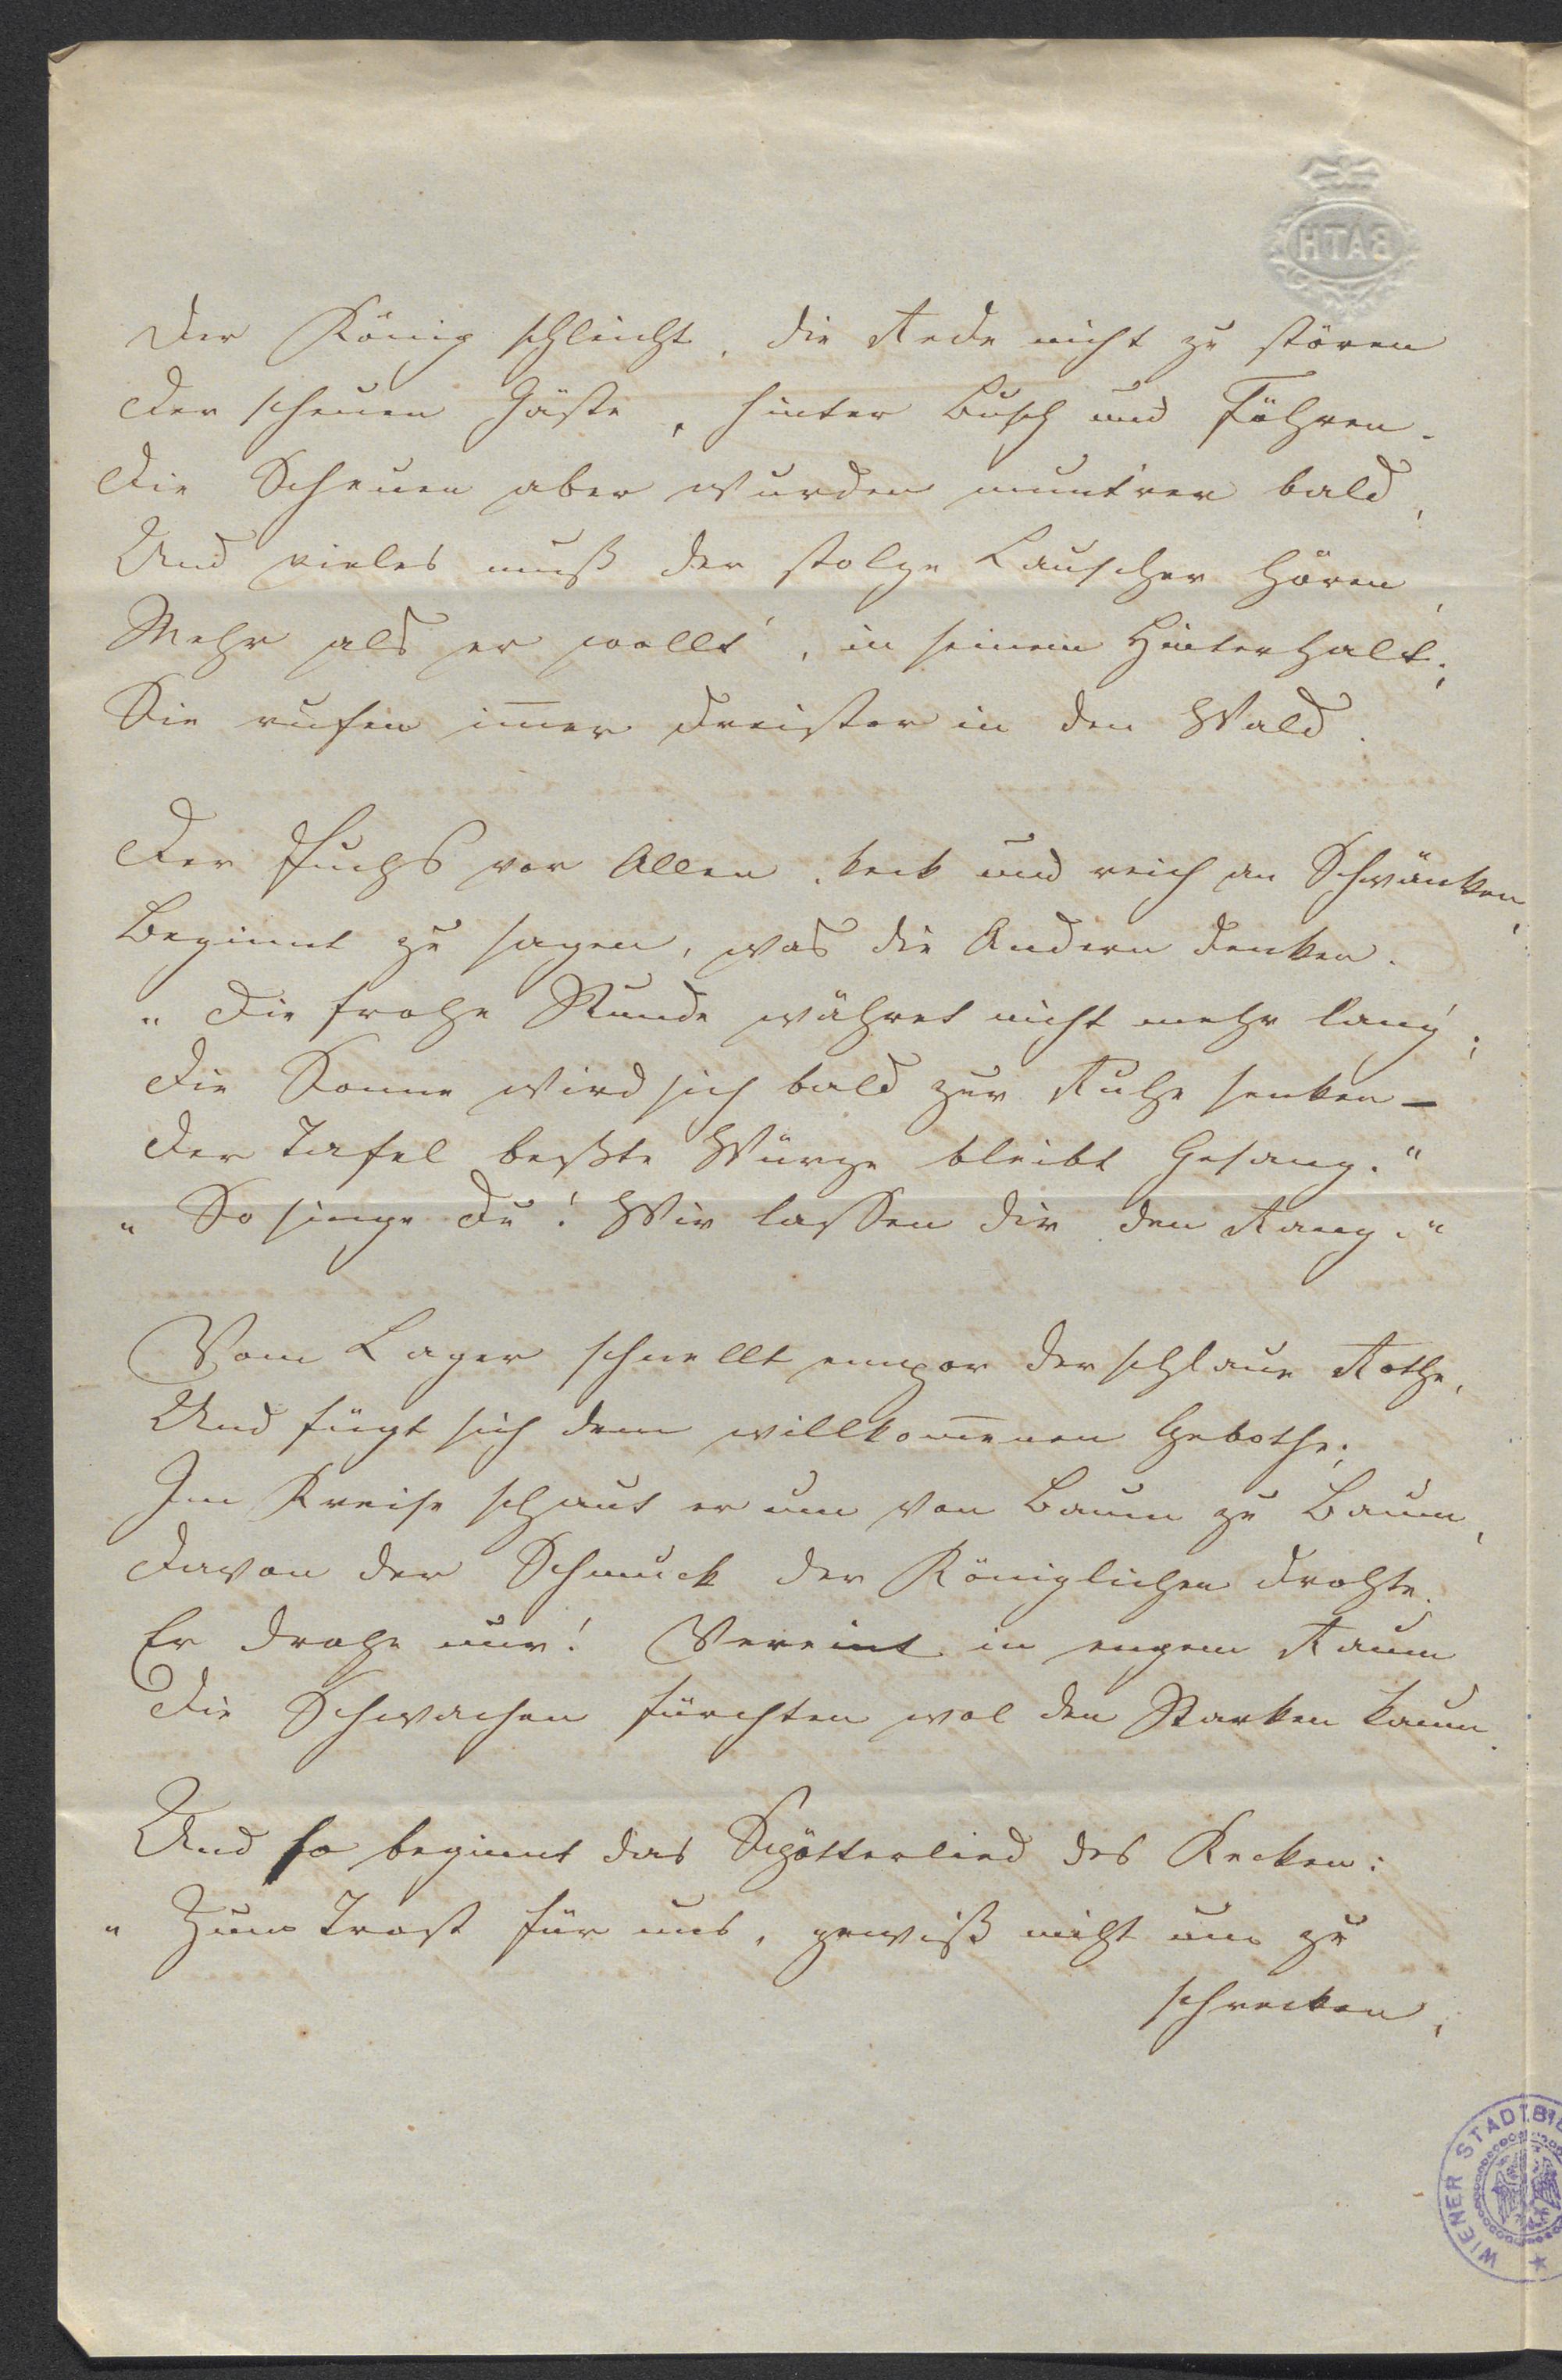 Der König schleicht, die Rede nicht zu stören
Der scheuen Gäste, hinter Busch und Föhren.
Die Scheuen aber wurden munt'rer bald,
Und vieles muß der stolze Lauscher hören,
Mehr als er wollt', in seinem Hinterhalt;
Sie rufen im̅er dreister in den Wald.
Der Fuchs vor Allen, keck und reich an Schwänken,
Beginnt zu sagen, was die Andern denken.
„Die frohe Stunde währet nicht mehr lang';
Die Sonne wird sich bald zur Ruhe senken –
Der Tafel beßte Würze bleibt Gesang."
„So singe Du! Wir lassen dir den Rang."
Vom Lager schnellt empor der schlaue Rothe,
Und fügt sich dem willkom̅enen Gebothe;
Im Kreise schaut er um von Baum zu Baum,
Davon der Schmuck der Königlichen drohte.
Er drohe nur! Vereint in engem Raum
Die Schwachen fürchten wol den Starken kaum.
Und so beginnt das Spötterlied des Kecken:
„Zum Trost für uns, gewiß nicht um zu
schrecken,
BATH
WIENER STADTBI